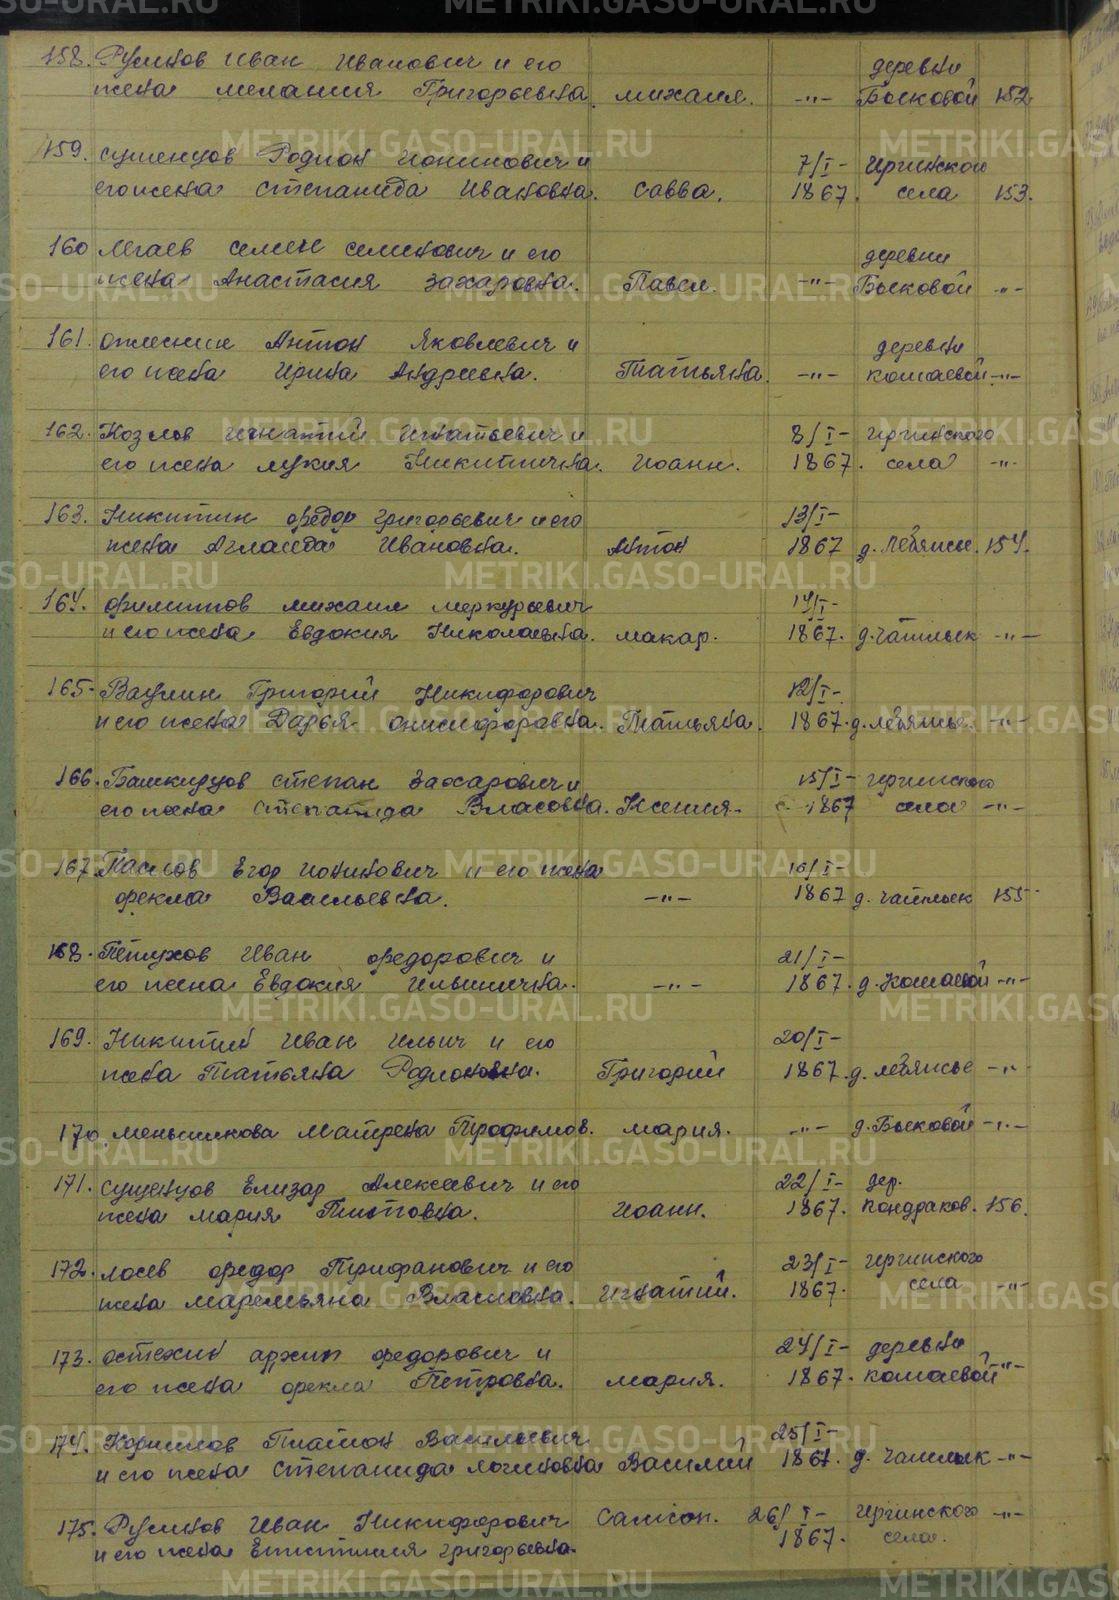 158. Русинов Иван Иванович и его деревни
жена Мелания Григорьевна. Михаил. -"- Быковой 152
159. Сушенцов Родион Ионинович и 7/I- Иргинского
его жена Степанида Ивановна. Савва. 1867. села 153.
160 Легаев Семен Семенович и его деревни
жена Анастасия Захаровна. Павел. -"- Быковой -"-
161. Антон Яковлевич и деревни
его жена Ирина Андреевна. Татьяна. -"- Кошаевой -"-
162. Козлов Игнатий Игнатьевич и 8/I- Иргинского
его жена Лукия Никитична. Иоанн. 1867. села -"-
163. Никитин Федор Григорьевич и его 13/I-
жена Аглаида Ивановна. Антон 1867 д. Лебяжье. 154.
164. Филиппов Михаил Меркурьевич 14/I-
и его жена Евдокия Николаевна. Макар. 1867. д. Чатлык -"-
165- Ваулин Григорий Никифорович 12/I-
и его жена Дарья Онисифоровна. Татьяна. 1867. д. Лебяжье. -"-
166. Башкирцов Степан Захарович и 15/I- Иргинского
его жена Степанида Власовна. Ксения. 1867 села -"-
167 Егор Ионинович и его жена 16/I-
Фекла Васильевна. -"- 1867 д. Чатлык 155
168. Петухов Иван Федорович и 21/I-
его жена Евдокия Ильинична. -"- 1867. д. Кошаевой -"-
169. Никитин Иван Ильич и его 20/I-
жена Татьяна Родионовна. Григорий 1867. д. Лебяжье -"-
170. Меньшикова Матрена Трофимов. Мария. -"- д. Быковой -"-
171. Сушенцов Елизар Алексеевич и его 22/I- дер.
жена Мария Титовна. Иоанн. 1867. Кондраков. 156.
172. Лосев Федор Трифанович и его 23/I- Иргинского
жена Маремьяна Власовна. Игнатий. 1867. села -"-
173. Остехин Архип Федорович и 24/I- деревни
его жена Фекла Петровна. Мария. 1867. Кошаевой -"-
174. Корнилов Платон Васильевич 25/I-
и его жена Степанида Логиновна Василий 1867. д. Чатлык -"-
175. Русинов Иван Никифорович Самсон. 26/I- Иргинского -"-
и его жена Епистимия Григорьевна. 1867. села.